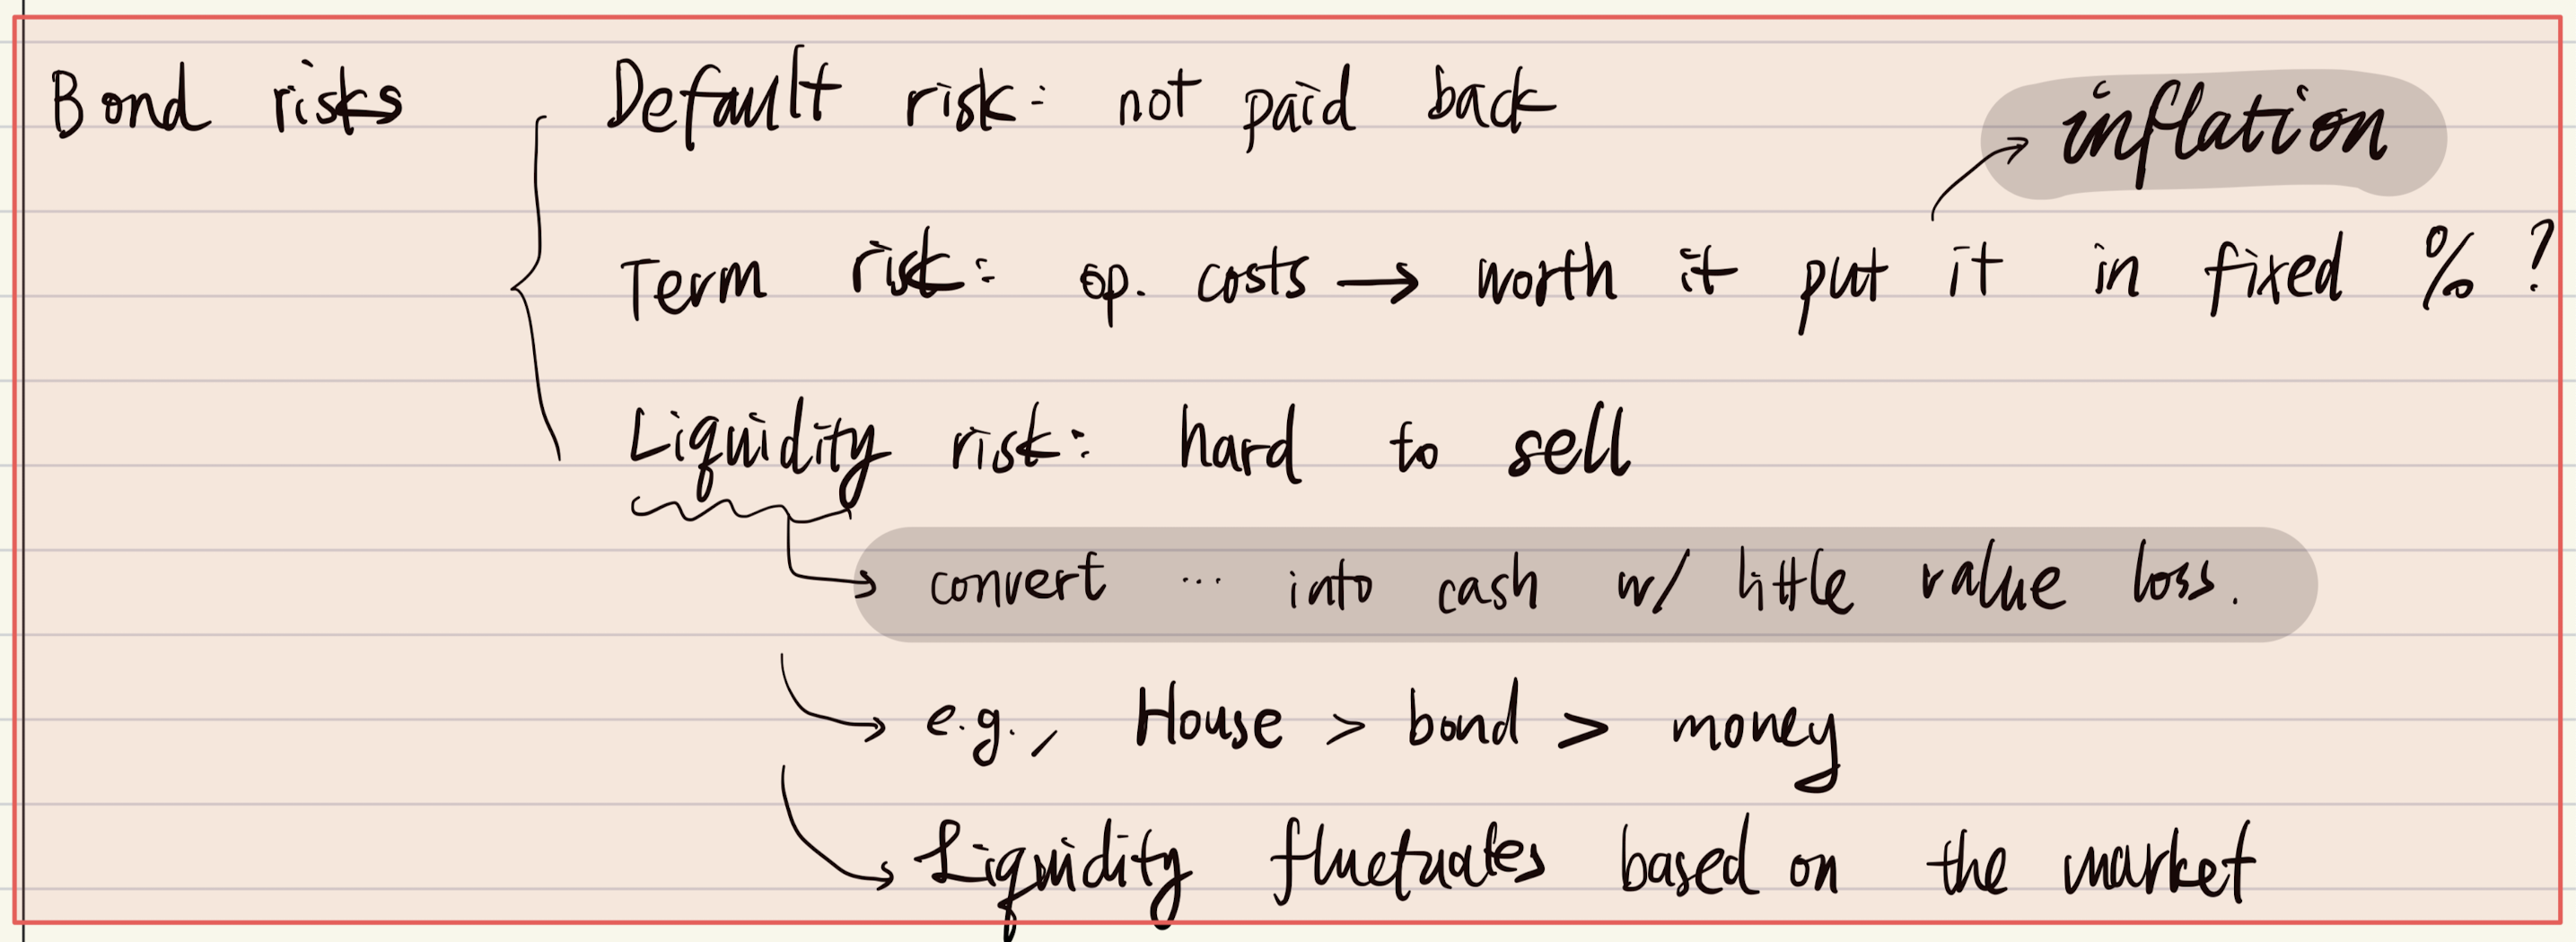 Bond risks
Default risk: not paid back
inflation
Term risk: op. costs → worth it put it in fixed % ?
Liquidity risk: hard to sell
convert ... into cash w/ little value loss.
e.g., House > bond > money
Liquidity fluctuates based on the market